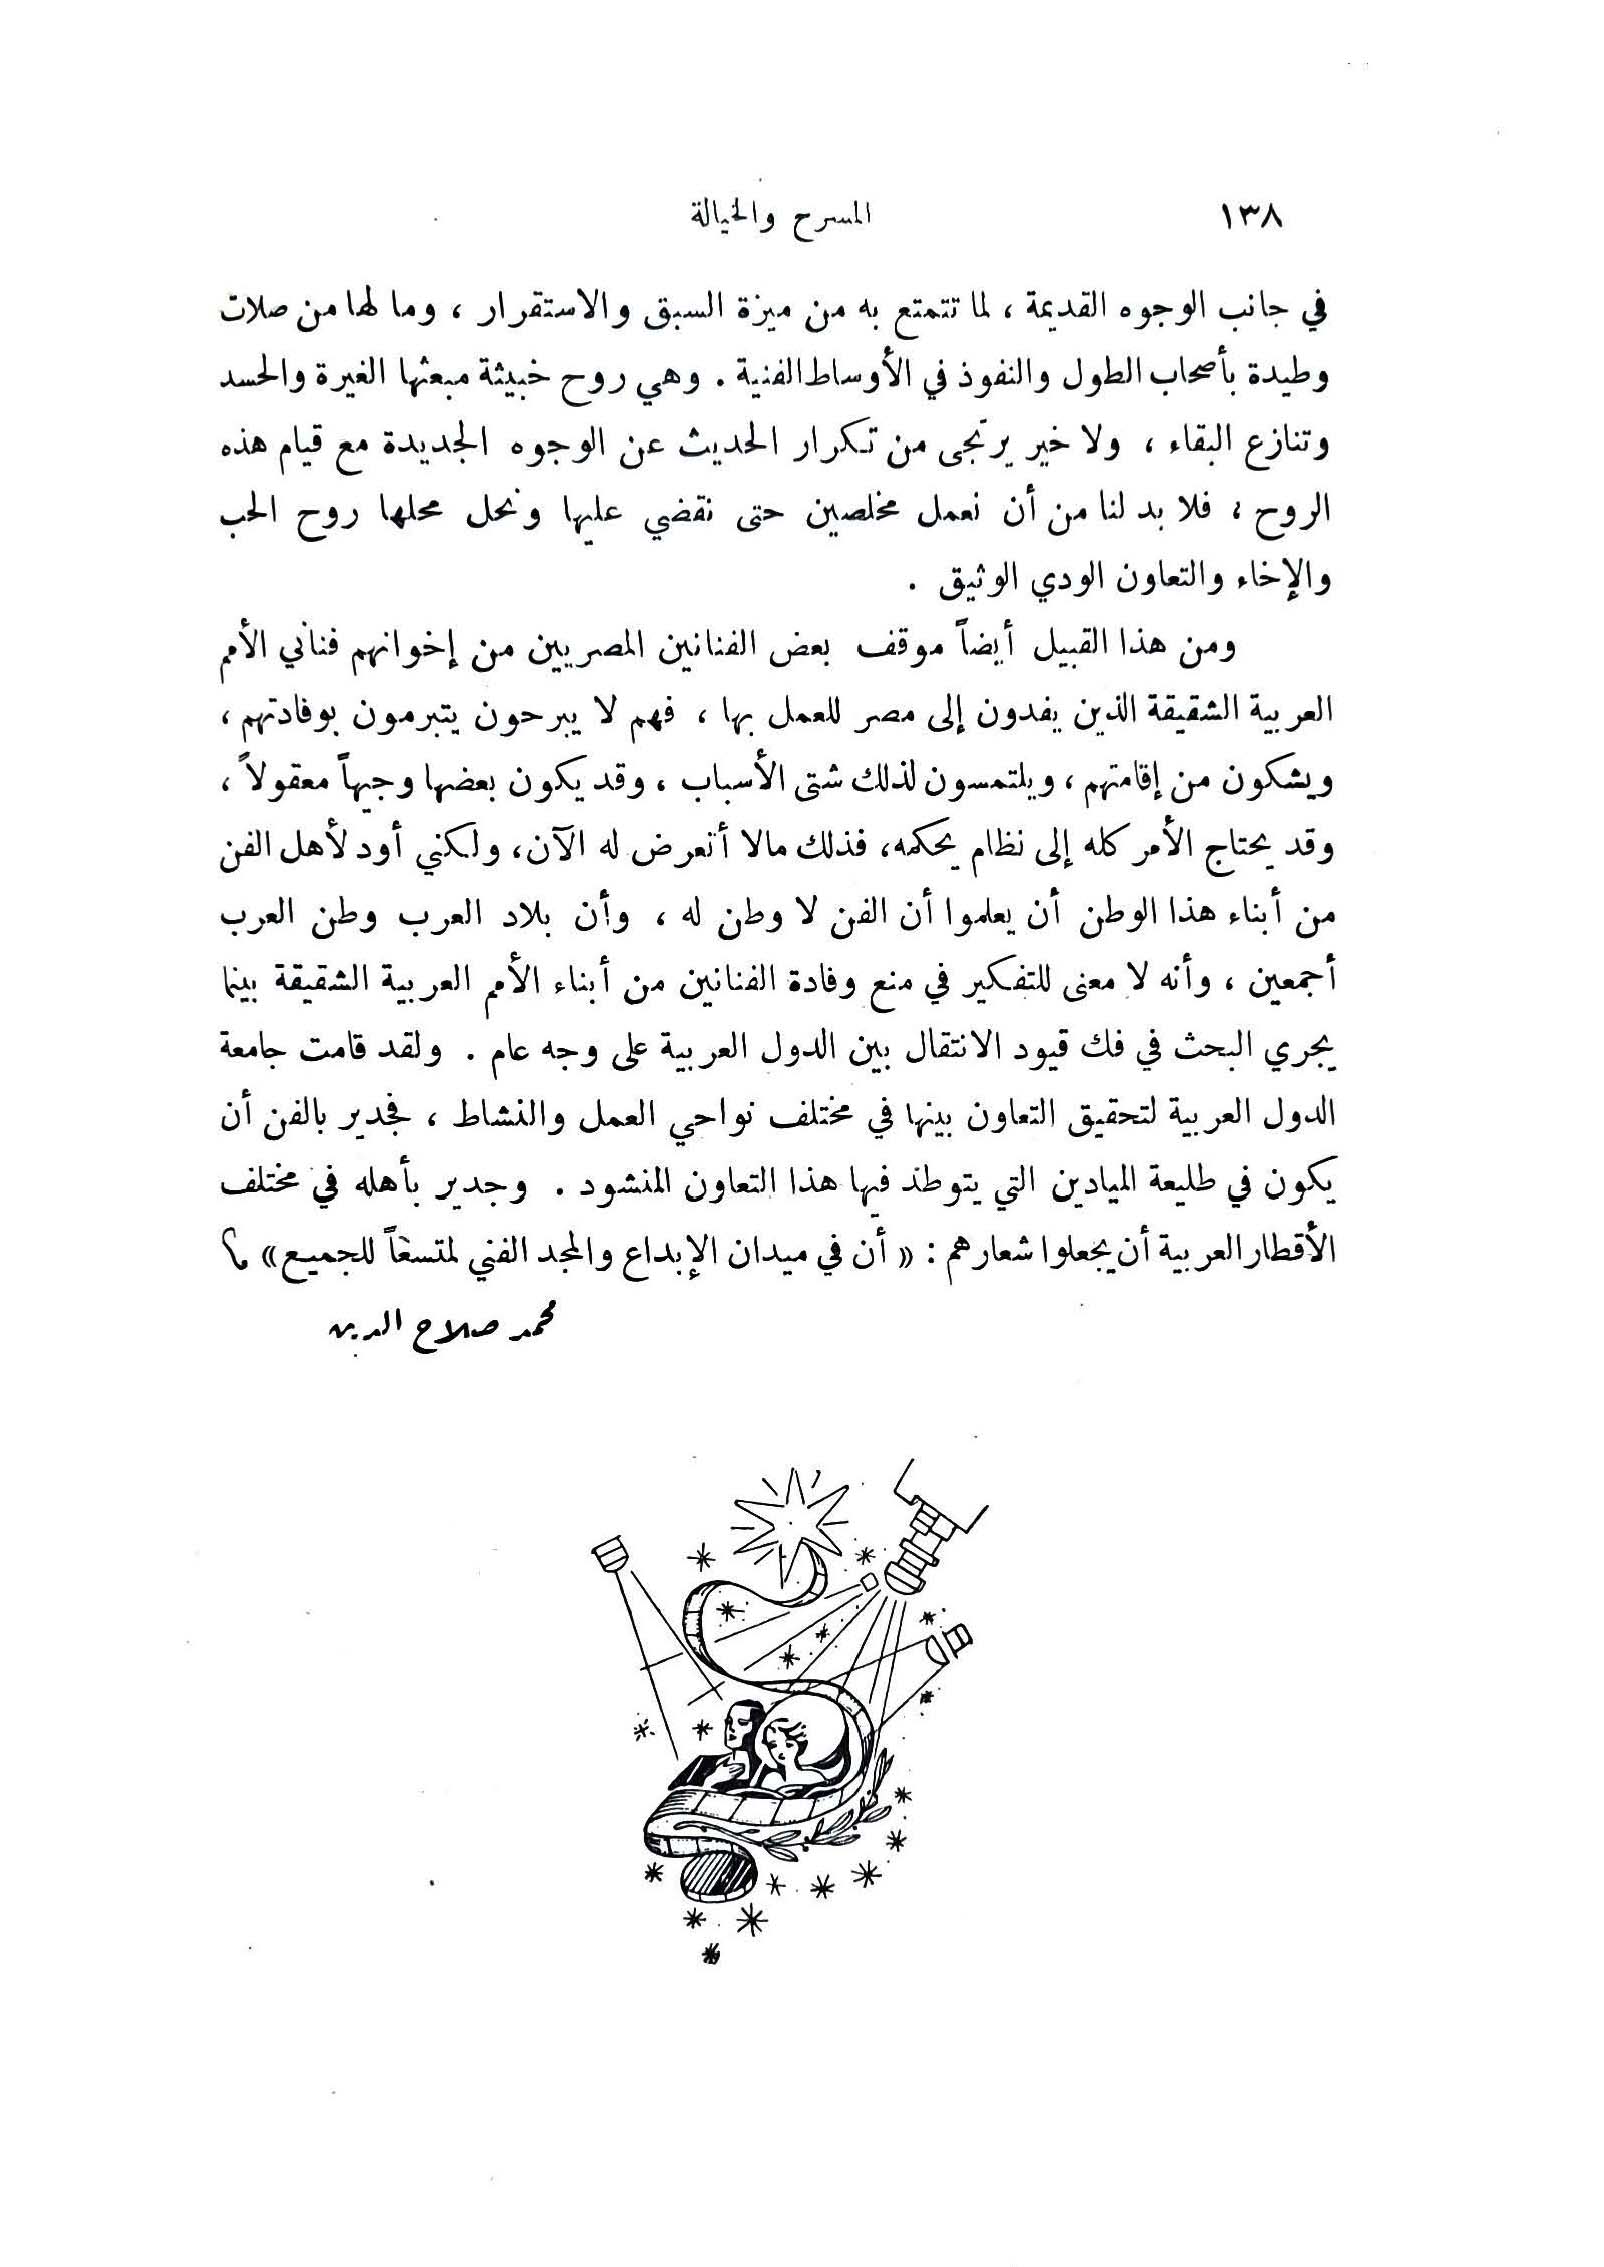 ١٣٨ المسرح والخيالة
في جانب الوجوه القديمة ، لما تتمتع به من ميزة السبق والاستقرار ، وما لها من صلات
وطيدة بأصحاب الطول والنفوذ في الأوساط الفنية . وهي روح خبيثة مبعثها الغيرة والحسد
وتنازع البقاء ، ولا خير يرتجى من تكرار الحديث عن الوجوه الجديدة مع قيام هذه
الروح ؛ فلا بد لنا من أن نعمل مخلصين حتى نقضي عليها ونحل محلها روح الحب
والإخاء والتعاون الودي الوثيق .
ومن هذا القبيل أيضاً موقف بعض الفنانين المصريين من إخوانهم فناني الأمم
العربية الشقيقة الذين يفدون إلى مصر للعمل بها ، فهم لا يبرحون يتبرمون بوفادتهم ،
ويشكون من إقامتهم ، ويلتمسون لذلك شتى الأسباب ، وقد يكون بعضها وجيهاً معقولاً ،
وقد يحتاج الأمر كله إلى نظام يحكمه، فذلك مالا أتعرض له الآن، ولكني أود لأهل الفن
من أبناء هذا الوطن أن يعلموا أن الفن لا وطن له ، وأن بلاد العرب وطن العرب
أجمعين ، وأنه لا معنى للتفكير في منع وفادة الفنانين من أبناء الأمم العربية الشقيقة بينما
يجري البحث في فك قيود الانتقال بين الدول العربية على وجه عام . ولقد قامت جامعة
الدول العربية لتحقيق التعاون بينها في مختلف نواحي العمل والنشاط ، فجدير بالفن أن
يكون في طليعة الميادين التي يتوطد فيها هذا التعاون المنشود . وجدير بأهله في مختلف
الأقطار العربية أن يجعلوا شعارهم : « أن في ميدان الإبداع والمجد الفني لمتسعاً للجميع »
محمد صلاح الدين